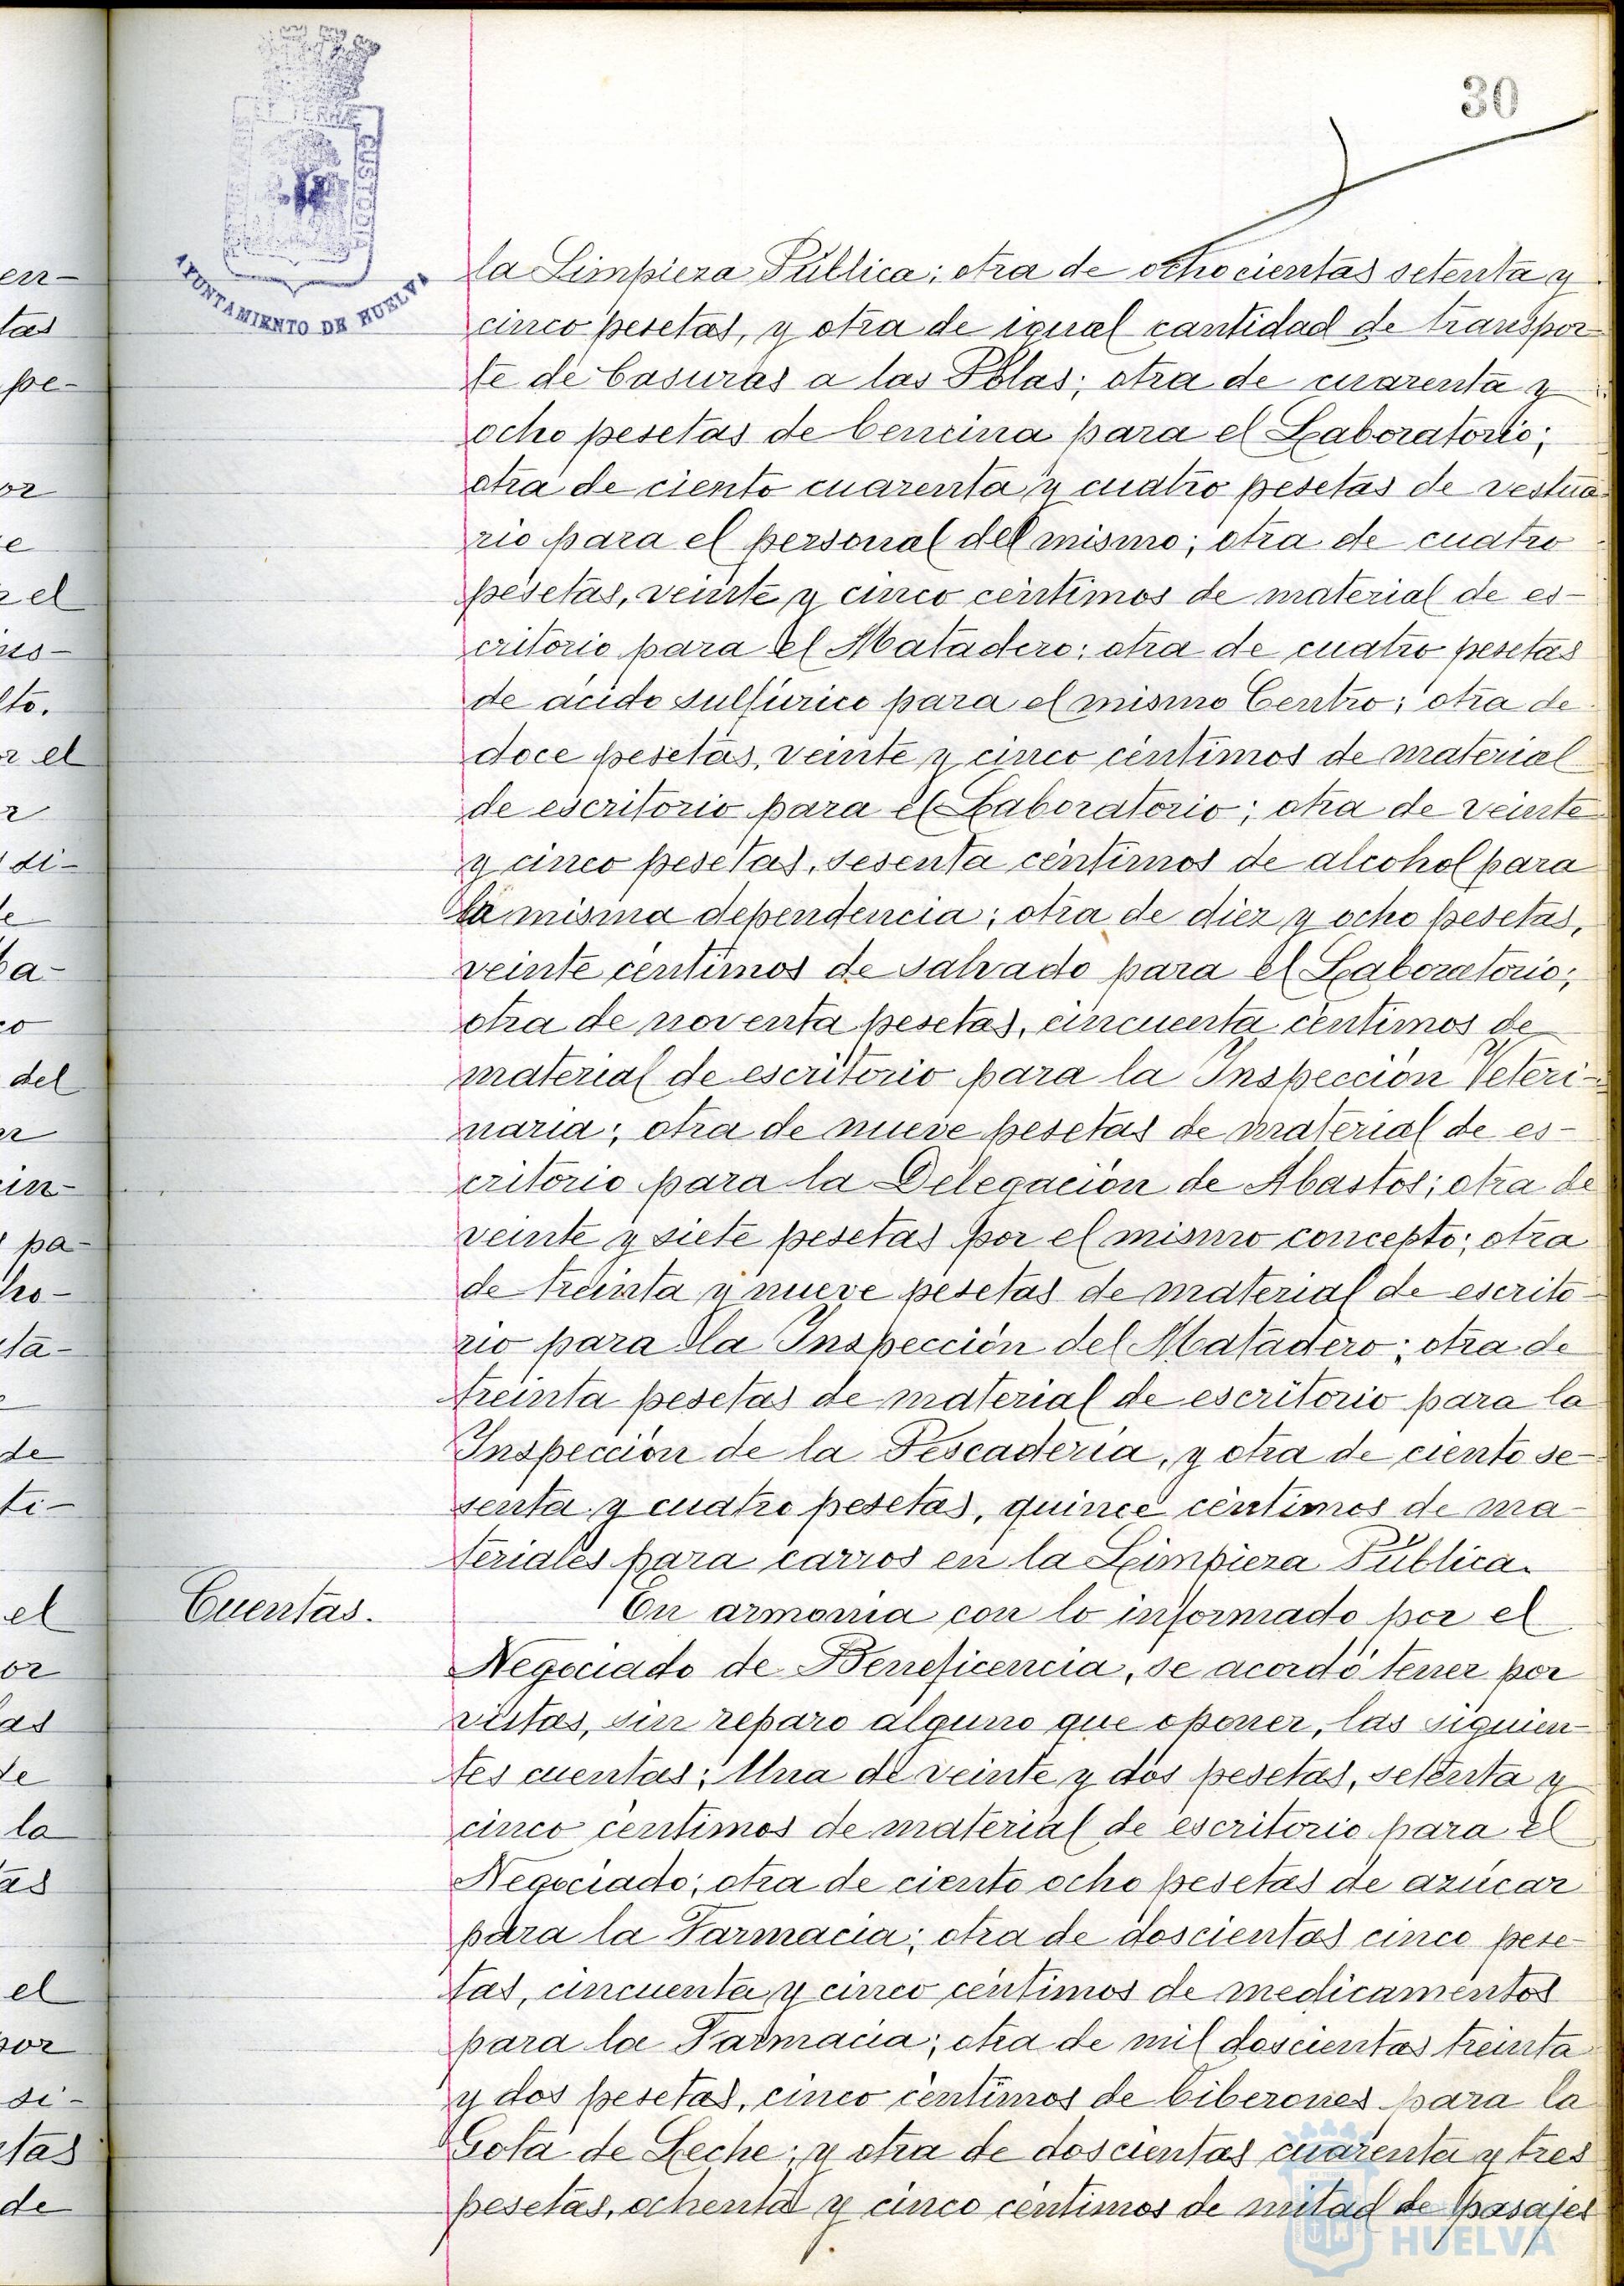 30
AYUNTAMIENTO DE HUELVA
la Limpieza Pública; otra de ochocientas setenta y
cinco pesetas, y otra de igual cantidad de transpor-
te de basuras a las Polas; otra de cuarenta y
ocho pesetas de bencina para el Laboratorio;
otra de ciento cuarenta y cuatro pesetas de vestua-
rio para el personal del mismo; otra de cuatro
pesetas, veinte y cinco céntimos de material de es-
critorio para el Matadero; otra de cuatro pesetas
de ácido sulfúrico para el mismo Centro; otra de
doce pesetas, veinte y cinco céntimos de material
de escritorio para el Laboratorio; otra de veinte
y cinco pesetas, sesenta céntimos de alcohol para
la misma dependencia; otra de diez y ocho pesetas,
veinte céntimos de salvado para el Laboratorio;
otra de noventa pesetas, cincuenta céntimos de
material de escritorio para la Inspección Veteri-
naria; otra de nueve pesetas de material de es-
critorio para la Delegación de Abastos; otra de
veinte y siete pesetas por el mismo concepto; otra
de treinta y nueve pesetas de material de escrito-
rio para la Inspección del Matadero; otra de
treinta pesetas de material de escritorio para la
Inspección de la Pescadería, y otra de ciento se-
senta y cuatro pesetas, quince céntimos de ma-
teriales para carros en la Limpieza Pública.
Cuentas. En armonía con lo informado por el
Negociado de Beneficencia, se acordó tener por
vistas, sin reparo alguno que oponer, las siguien-
tes cuentas: Una de veinte y dos pesetas, setenta y
cinco céntimos de material de escritorio para el
Negociado; otra de ciento ocho pesetas de azúcar
para la Farmacia; otra de doscientas cinco pese-
tas, cincuenta y cinco céntimos de medicamentos
para la Farmacia; otra de mil doscientas treinta
y dos pesetas, cinco céntimos de biberones para la
Gota de Leche; y otra de doscientas cuarenta y tres
pesetas, ochenta y cinco céntimos de mitad de pasajes
HUELVA